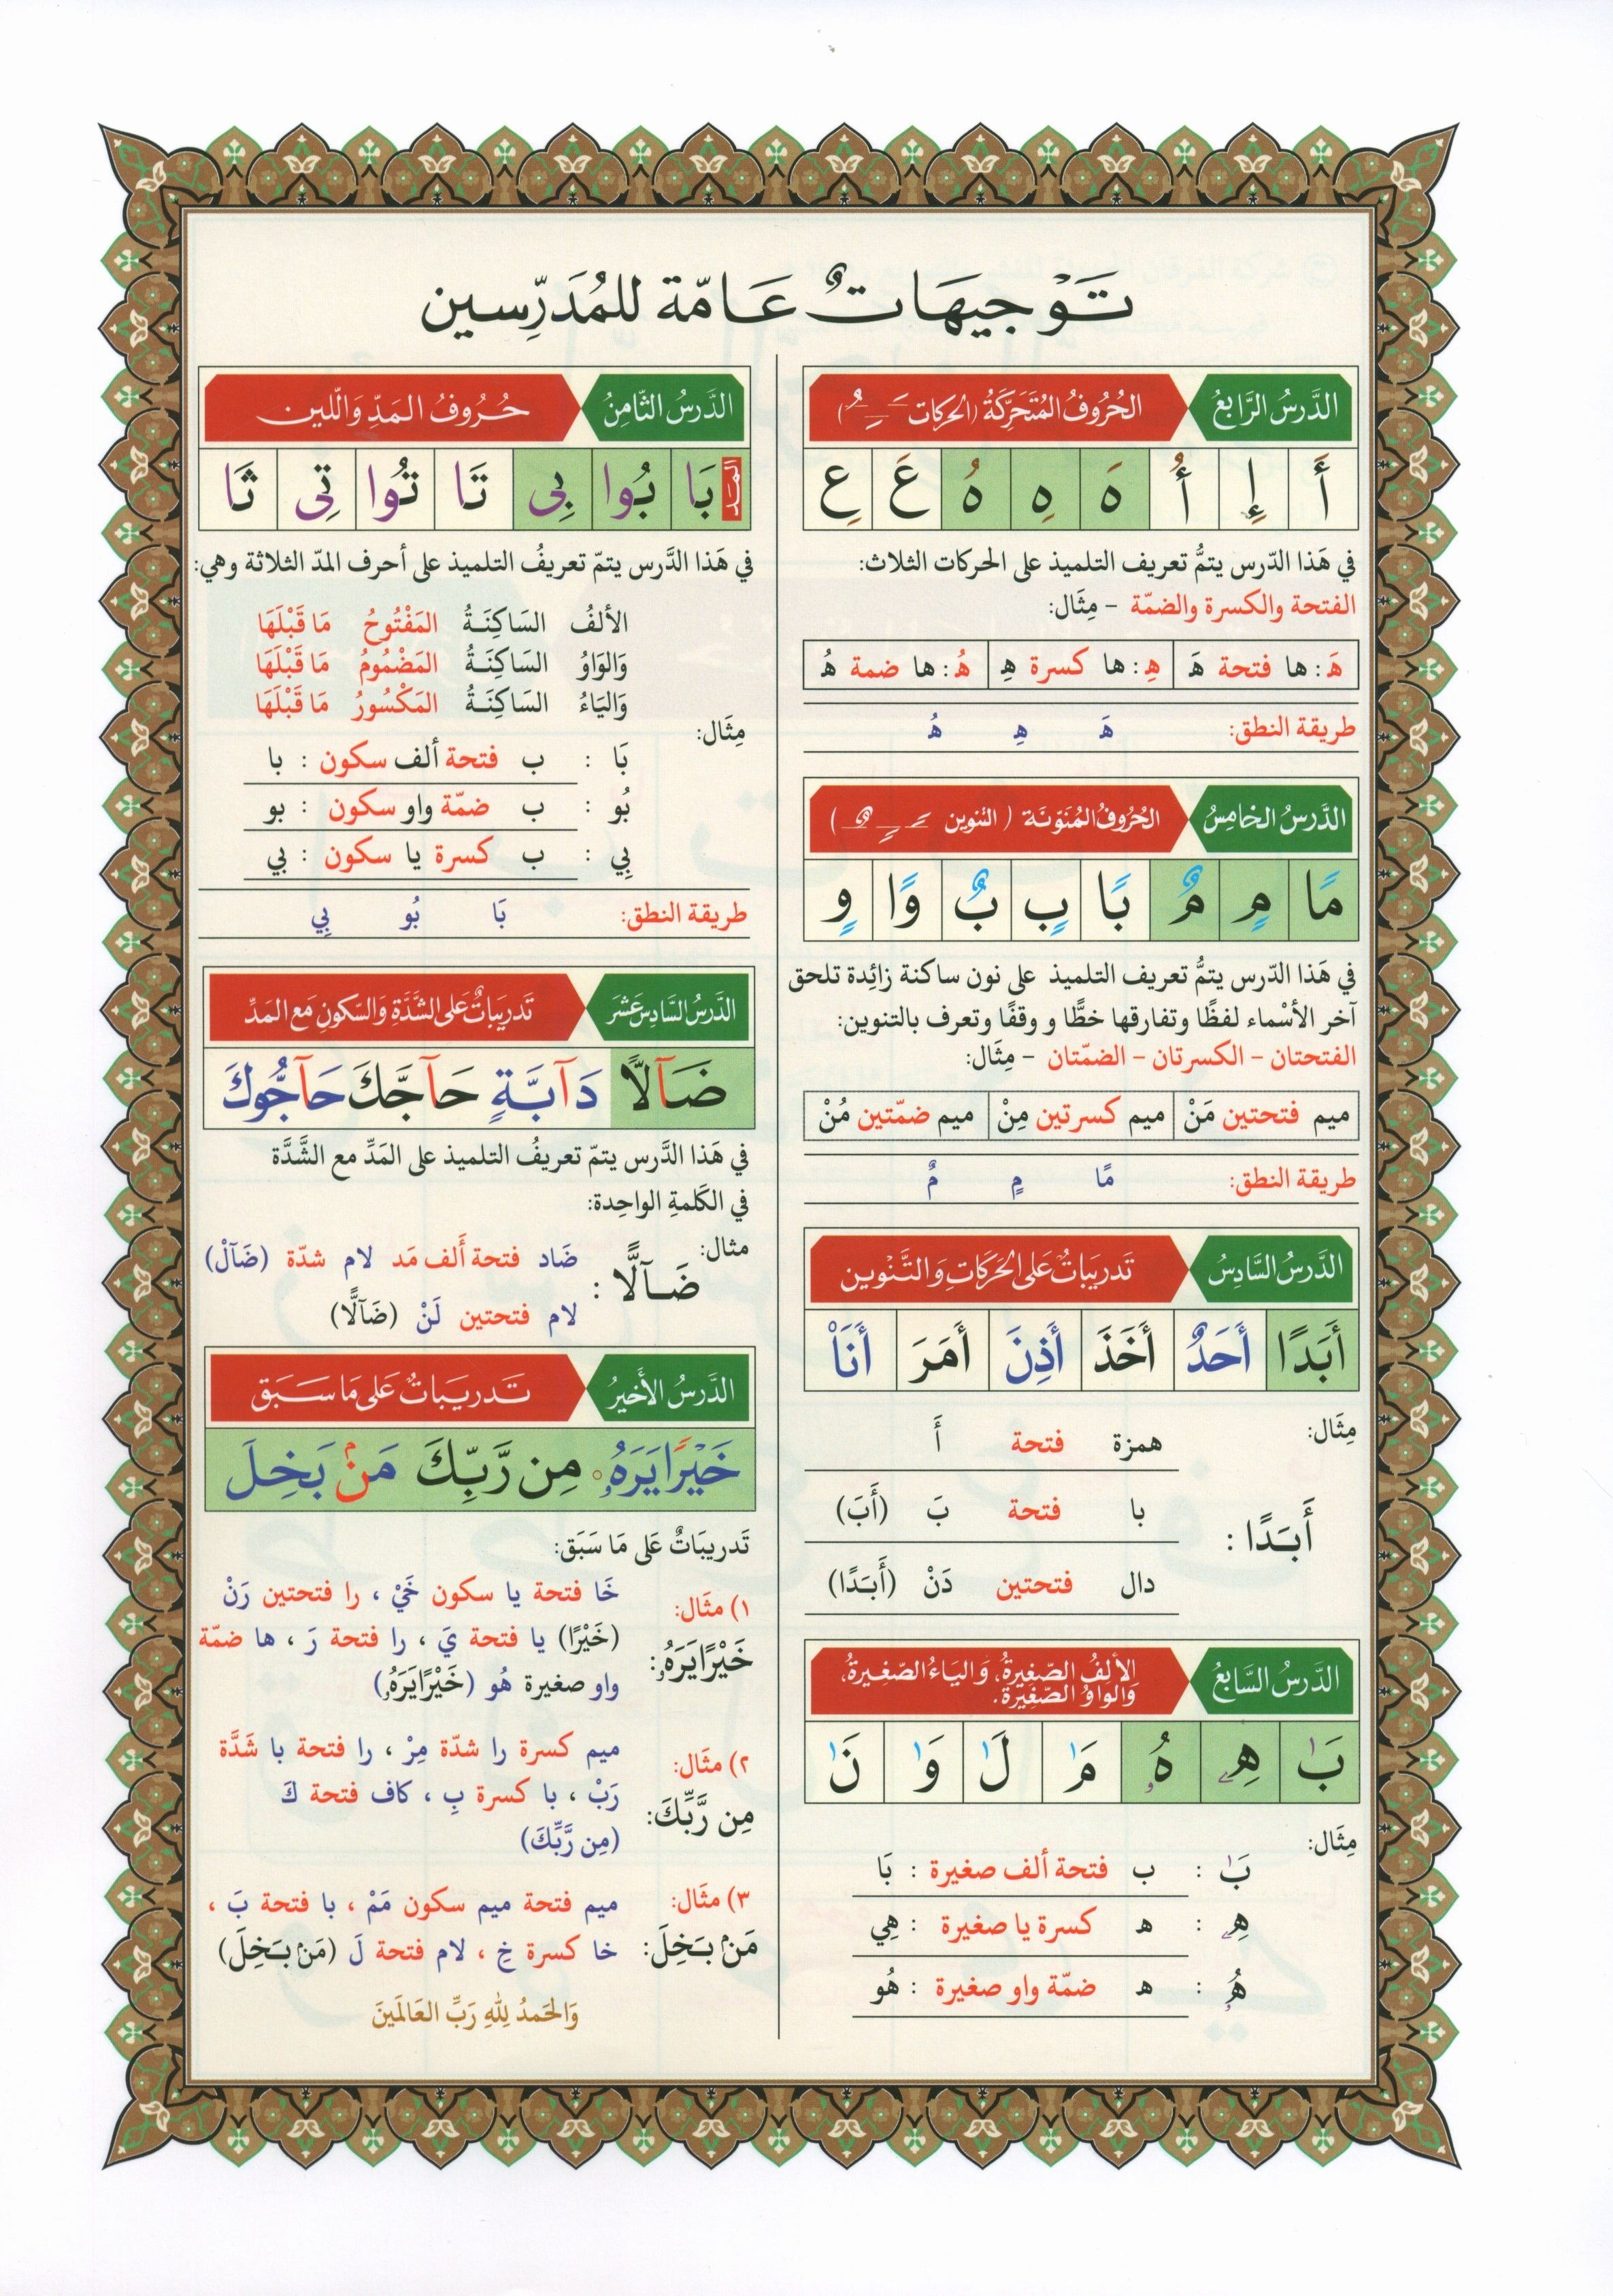 تَوْجِيهَاتٌ عَامّة للمُدَرِّسين
الدَّرسُ الرَّابعُ
الحُرُوفُ المُتَحَرِّكَةُ (الحركات ـَ ـِ ـُ)
أَ إِ أُ هَ هِ هُ عَ عِ
في هَذا الدّرس يتمُّ تعريف التلميذ على الحركات الثلاث:
الفتحة والكسرة والضمّة - مِثَال:
هَ: ها فتحة هَ هِ: ها كسرة هِ هُ: ها ضمة هُ
طريقة النطق: هَ هِ هُ
الدَّرسُ الخامِسُ
الحُرُوفُ المُنَوّنَة ( التنوين ـً ـٍ ـٌ )
مًا مٍ مٌ بًا بٍ بٌ وًا وٍ
في هَذا الدّرس يتمُّ تعريف التلميذ على نون ساكنة زائِدة تلحق
آخر الأسْماء لفظًا وتفارقها خطًّا و وقفًا وتعرف بالتنوين:
الفتحتان - الكسرتان - الضمّتان - مِثَال:
ميم فتحتين مَنْ ميم كسرتين مِنْ ميم ضمّتين مُنْ
طريقة النطق: مًا مٍ مٌ
الدَّرسُ السَّادِسُ
تَدريبَاتٌ على الحَرَكَاتِ وَالتَّنْوين
أَبَدًا أَحَدٌ أَخَذَ أَذِنَ أَمَرَ أَنَا۠
مِثَال:
همزة فتحة أَ
أَبَـدًا :
با فتحة بَ (أَبَ)
دال فتحتين دَنْ (أَبَـدًا)
الدَّرسُ السَّابعُ
الألفُ الصّغيرةُ، وَاليَاءُ الصّغيرةُ،
وَالواوُ الصّغيرَة.
بَٰ هِۦ هُۥ مَٰ لَٰ وَٰ نَٰ
مِثَال:
بَٰ : ب فتحة ألف صغيرة : بَا
هِۦ : ه كسرة يا صغيرة : هِي
هُۥ : ه ضمّة واو صغيرة : هُو
الدَّرسُ الثَّامنُ
حُرُوفُ المَدّ وَاللّين
المَد بَا بُوا بِى تَا تُوا تِى ثَا
في هَذا الدَّرس يتمّ تعريفُ التلميذ على أحرف المدّ الثلاثة وهي:
الألفُ السَاكِنَـةُ المَفْتُوحُ مَا قَبْلَهَا
وَالوَاوُ السَاكِنَـةُ المَضْمُومُ مَا قَبْلَهَا
وَاليَاءُ السَاكِنَـةُ المَكْسُورُ مَا قَبْلَهَا
مِثَال:
بَا : ب فتحة ألف سكون : با
بُو : ب ضمّة واو سكون : بو
بِي : ب كسرة يا سكون : بي
طريقة النطق: بَا بُو بِي
الدَّرسُ السَّادِسَ عَشَرَ
تَدريبَاتٌ عَلى الشَّدَّةِ وَالسّكونِ مَع المَدِّ
ضَآلًّا دَآبَّةٍ حَآجَّكَ حَآجُّوكَ
في هَذا الدَّرس يتمّ تعريفُ التلميذ على المَدِّ مع الشَّدَّة
في الكَلمةِ الواحِدة:
مثال:
ضَـآلًّا : ضَاد فتحة أَلف مَد لام شدّة (ضَآلْ)
لام فتحتين لَنْ (ضَآلًّا)
الدَّرسُ الأَخيرُ
تَـدريـبَـاتٌ عَلى مَا سَـبَـق
خَيْرًا يَرَهُۥ ۝ مِن رَّبِّكَ مَنۢ بَخِلَ
تَدريبَاتٌ عَلى مَا سَبَق:
١) مثَال: خَا فتحة يا سكون خَيْ ، را فتحتين رَنْ
خَيْرًا يَرَهُۥ: (خَيْرًا) يا فتحة يَ ، را فتحة رَ ، ها ضمّة
واو صغيرة هُو (خَيْرًا يَرَهُۥ)
٢) مثَال: ميم كسرة را شدّة مِرْ ، را فتحة با شَدَّة
مِن رَّبِّكَ: رَبْ ، با كسرة بِ ، كاف فتحة كَ
(مِن رَّبِّكَ)
٣) مثَال: ميم فتحة ميم سكون مَمْ ، با فتحة بَ ،
مَنۢ بَـخِلَ: خا كسرة خِ ، لام فتحة لَ (مَنۢ بَـخِلَ)
وَالحَمدُ لِلّهِ رَبِّ العَالَمَينَ